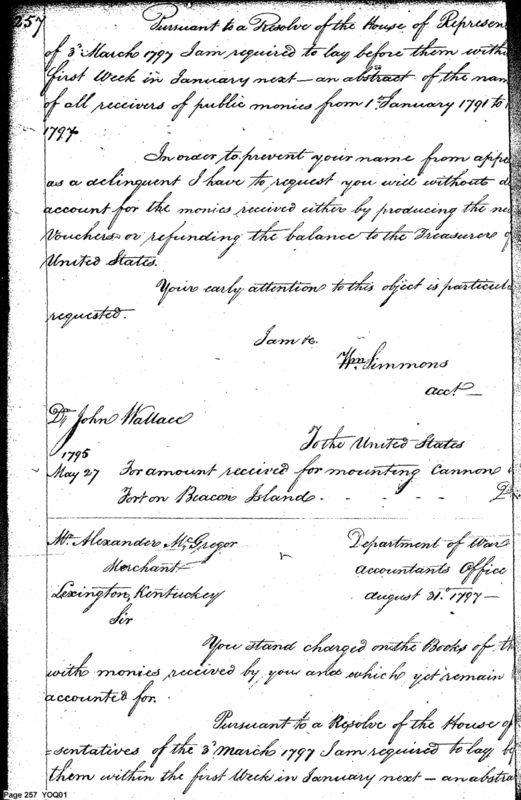 257
Pursuant to a Resolve of the House of Represen
of 3d March 1797 I am required to lay before them withi
first Week in January next — an abstract of the nam
of all receivers of public monies from 1st January 1791 to 1
1797
In order to prevent your name from appe
as a delinquent I have to request you will without d
account for the monies received either by producing the ne
Vouchers or refunding the balance to the Treasurer of
United States.
Your early attention to this object is particul
requested.
I am &c.
Wm Simmons
acct. —
Dr John Wallace
To the United States
1795
May 27 For amount received for mounting Cannon
Fort on Beacon Island. - - - -
Mr. Alexander McGregor
Merchant
Lexington, Kentuckey
Sir
Department of War
Accountants Office
August 31st 1797 —
You stand charged on the Books of th
with monies received by you and which yet remain
accounted for.
Pursuant to a Resolve of the House of
=sentatives of the 3d March 1797 I am required to lay b
them within the first Week in January next — an abstra
Page 257 YOQ01